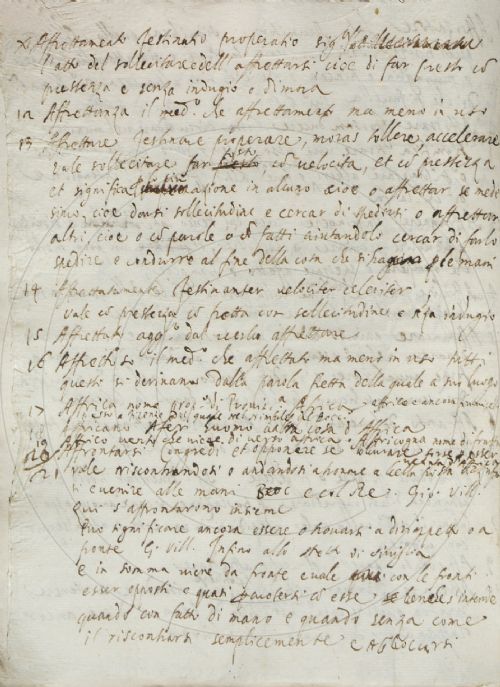 Affrettamento festinatio properatio sig.
l'atto del sollecitare e dell' affrettarsi, cioè di far presti cō
prestezza e senza indugio o dimora
12 Affrettanza il med.º che affrettamento ma meno in uso
13 Affrettare festinare properare, moras tollere, accelerare
vale sollecitare far presto, cō velocità, et cō prestezza
et significa azione in alcuno cioè o affrettar se mede
simo, cioè darsi sollecitudine e cercar di spedirsi o affrettare
altri, cioè o cō parole o cō fatti aiutandolo cercar di farlo
spedire e condurre al fine della cosa che si ha p le mani
14 Affrettatamente festinanter velociter celeriter
vale cō prestezza cō fretta con sollecitudine e sēza indugio
15 Affrettato agg.º dal verbo affrettare
16 Affrettoso il med.º che affrettato ma meno in uso tutti
questi si derivano dalla parola fretta della quale a suo luogo
17 Affrica nome prop. di Africa
africano Afer huomo d'Affrica
19 Affrico vento che viene di verso africa Affricogna nome di frutto
20 Affrontarsi Congredi et opponere se
21 vale riscontrandosi o andandosi a trovare a
si e venire alle mani Bocc e col Re. Gio. Vill.
qui s'affrontarono insieme
Può significare ancora essere o trovarsi a dirimpetto o a
fronte G. Vill. Infino allo stretto di Sibilia
e in somma viene da fronte e vale con le fronti
esser opposti e quasi cō esse se bene s'intende
quando con fatti di mano e quando senza come
il riscontrarsi semplicemente e abboccarsi